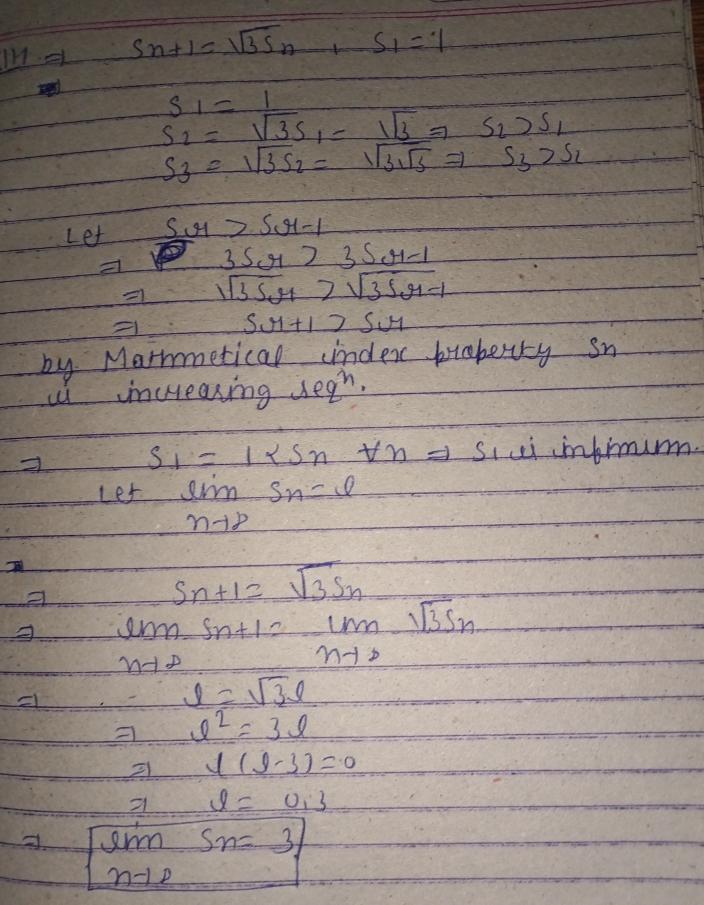 ⇒ Sn+1 = √3Sn , S1 = 1
S1 = 1
S2 = √3S1 = √3 ⇒ S2 > S1
S3 = √3S2 = √3√3 ⇒ S3 > S2
Let Sr > Sr-1
⇒ 3Sr > 3Sr-1
⇒ √3Sr > √3Sr-1
⇒ Sr+1 > Sr
by Mathmmetical index property Sn
is increasing seqⁿ.
⇒ S1 = 1 < Sn ∀n ⇒ S1 is infimum.
Let lim Sn = l
n→∞
⇒ Sn+1 = √3Sn
⇒ lim Sn+1 = lim √3Sn
n→∞ n→∞
⇒ l = √3l
⇒ l² = 3l
⇒ l(l-3) = 0
⇒ l = 0,3
⇒ lim Sn = 3
n→∞